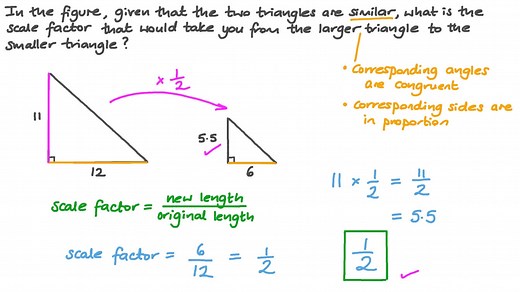 In the figure, given that the two triangles are similar, what is the
scale factor that would take you from the larger triangle to the
smaller triangle?
• Corresponding angles
are congruent
• Corresponding sides are
in proportion
× 1/2
11
12
5.5
6
scale factor = new length/original length
scale factor = 6/12 = 1/2
11 × 1/2 = 11/2
= 5.5
1/2